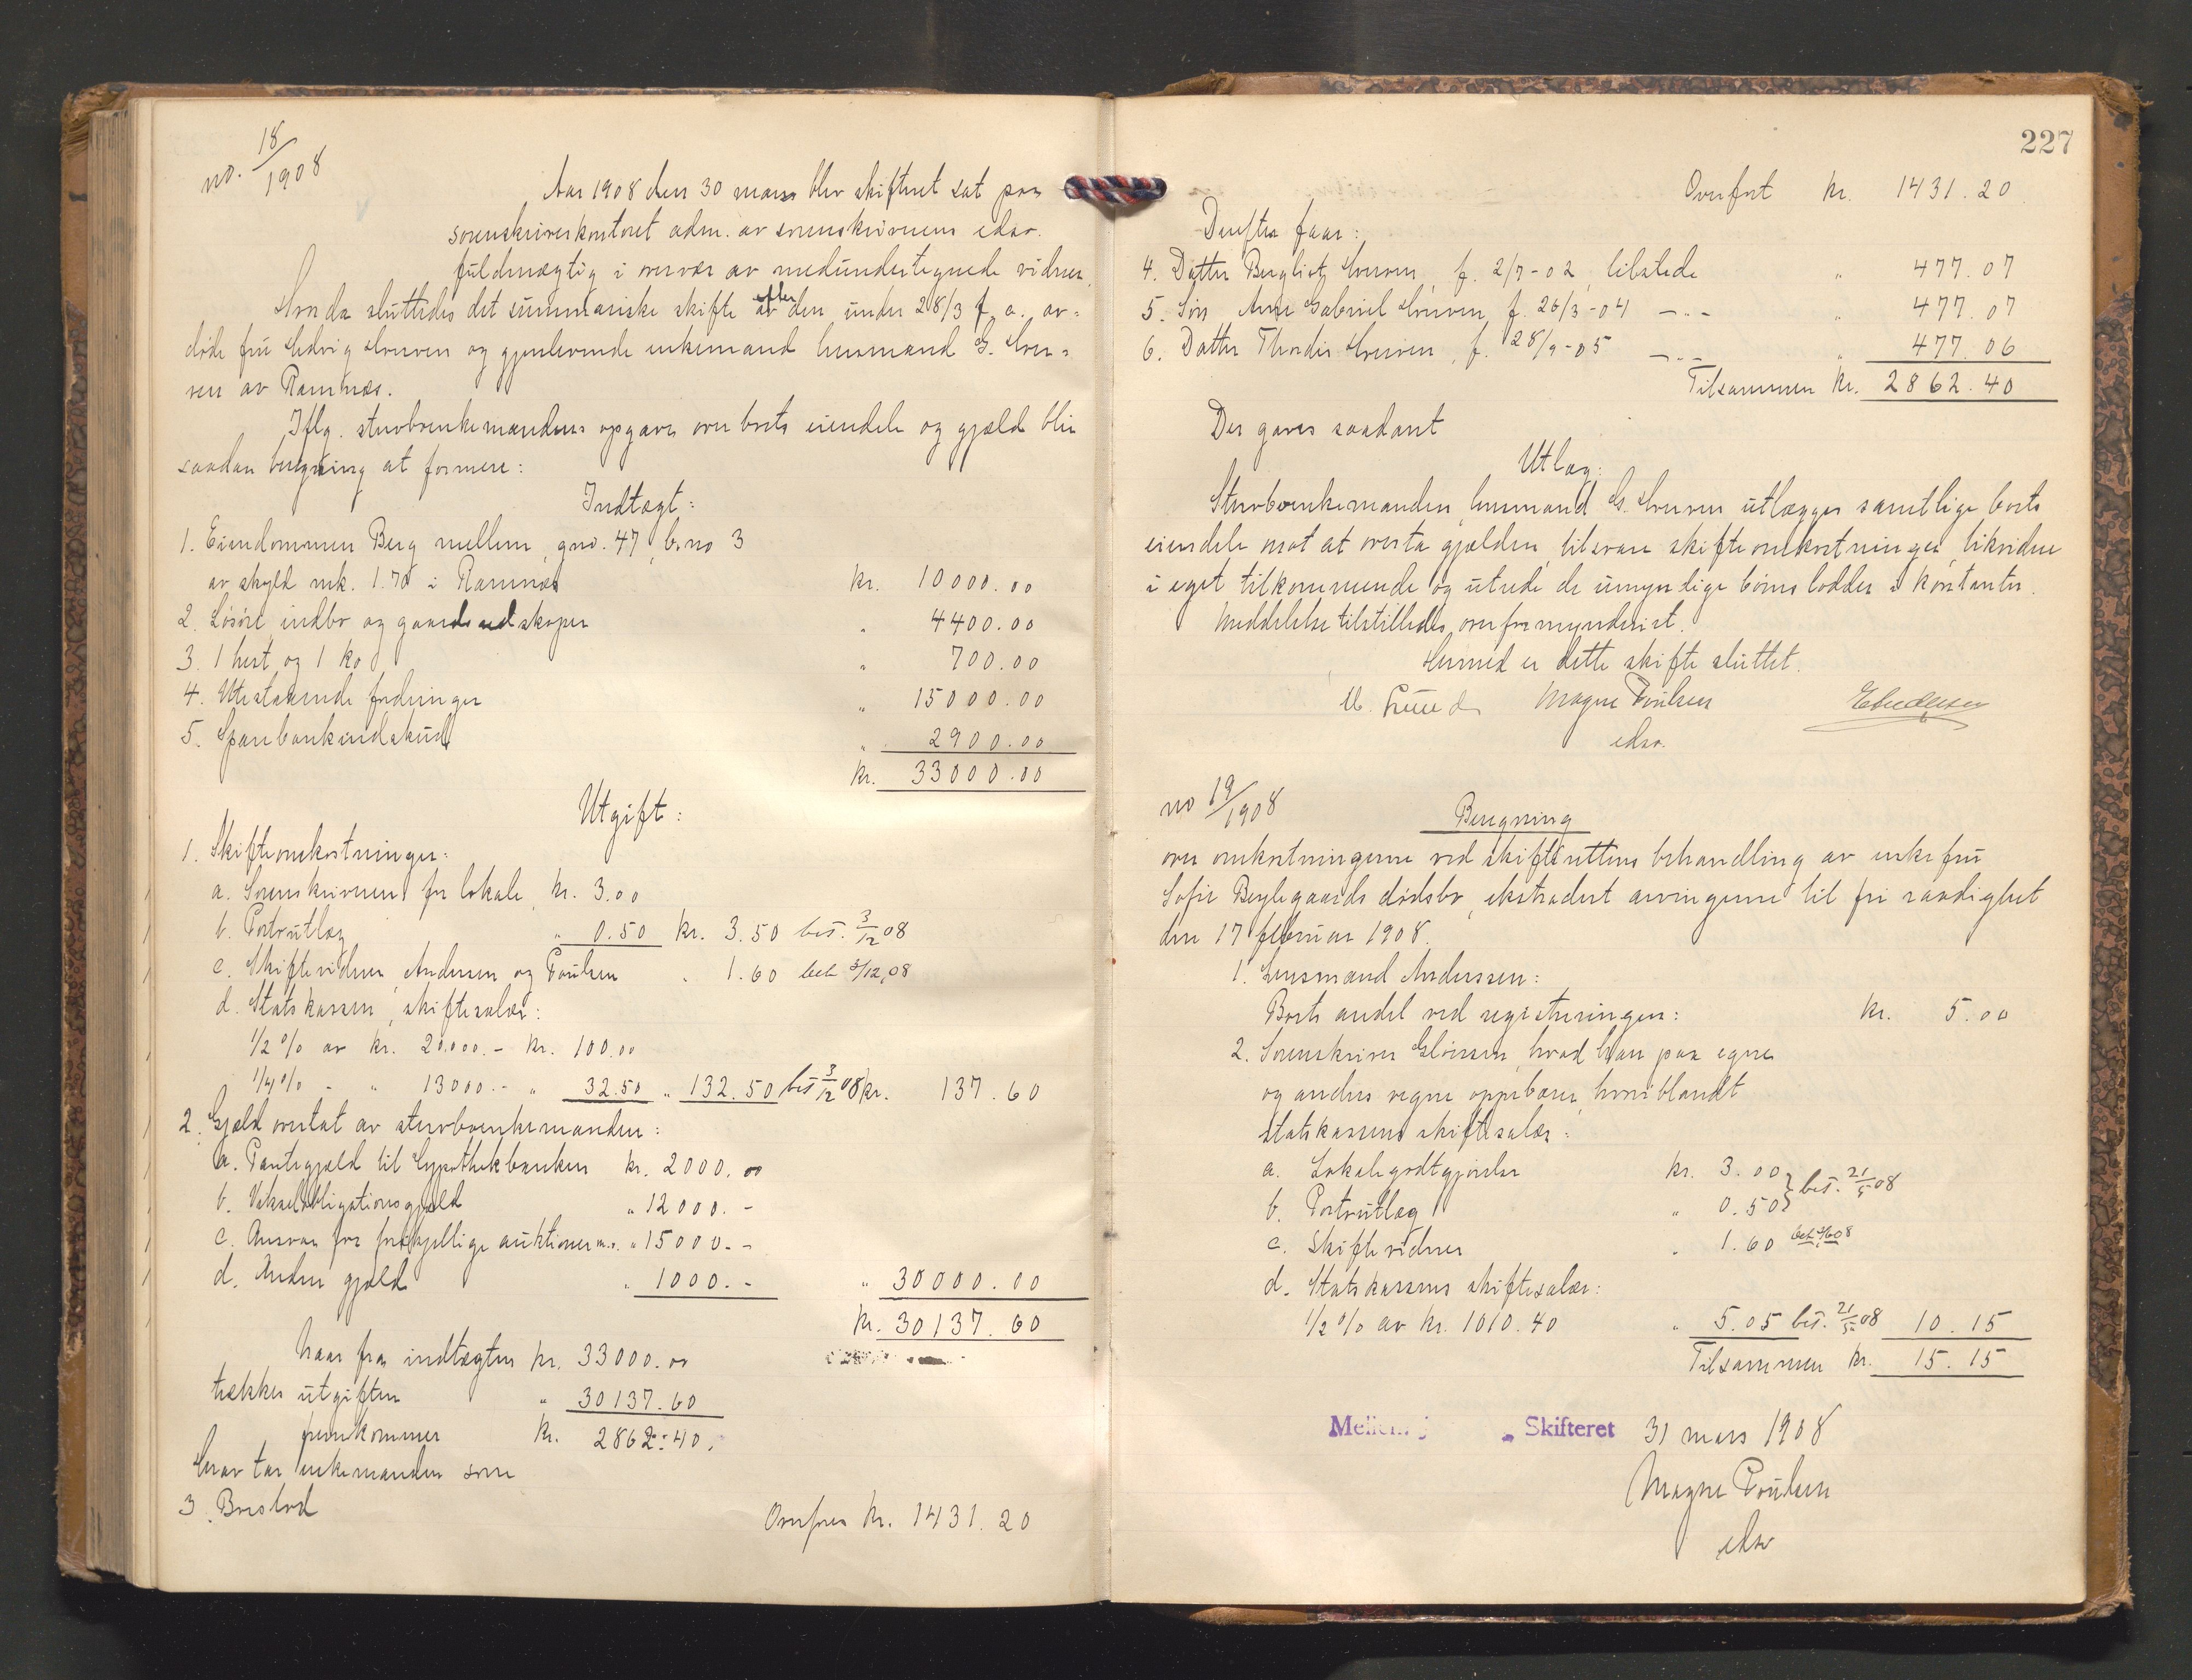 no. 18/1908
Aar 1908 den 30 mars blev skifteret sat paa
sorenskriverkontoret adm. av sorenskriverens edsv.
fuldmægtig i overvær av medundertegnede vidner.
Hvorda sluttedes det summariske skifte efter den under 28/3 f. a. av-
døde fru Hedvig Horven og gjenlevende enkemand lensmand G. Hor-
ven av Ramnæs.
Iflg. stervboenkemandens opgave over boets eiendele og gjæld blev
saadan beregning at formere:
Indtægt:
1. Eiendommen Berg mellem, gno. 47, b.no 3
av skyld mk. 1.70 i Ramnæs kr. 10000.00
2. Løsøre, indbo og gaardsredskaper " 4400.00
3. 1 hest og 1 ko " 700.00
4. Utestaaende fordringer " 15000.00
5. Sparebankindskud " 2900.00
kr. 33000.00
Utgift:
1. Skifteomkostninger:
a. Sorenskriveren for lokale kr. 3.00
b. Portoutlæg " 0.50 kr. 3.50 bet. 3/12 08
c. Skiftevidner Andersen og Poulsen " 1.60 bet 3/12,08
d. Statskassen, skiftesalær:
1/2 % av kr. 20.000.- kr. 100.00
1/4 % - " 13000.- " 32.50 " 132.50 bet 3/12 08 kr. 137.60
2. Gjæld overtat av stervboenkemanden:
a. Pantegjæld til Hypothekbanken kr. 2000.00
b. Vekselobligationsgjæld " 12000.-
c. Ansvar for forskjellige auktioner m.v. " 15000.-
d. Anden gjæld " 1000.- " 30000.00
kr. 30137.60
Naar fra indtægten kr. 33000.00
trækkes utgiften " 30137.60
fremkommer kr. 2862.40.
Herav tar enkemanden som
3. Boeslod Overføres kr. 1431.20
227
Overført kr. 1431.20
Derefter faar:
4. Datter Bergliot Horven, f. 2/7-02, tilstede " 477.07
5. Søn Arne Gabriel Horven, f. 26/3-04 -"- " 477.07
6. Datter Thordis Horven, f. 28/9-05 -"- " 477.06
Tilsammen kr. 2862.40
Der gaves saadant
Utlæg:
Stervboenkemanden, lensmand G. Horven utlægges samtlige boets
eiendele mot at overta gjælden, tilsvare skifteomkostninger, likvidere
i eget tilkommende og utrede de umyndige børns lodder i kontanter.
Meddelelse tilstilledes overformynderiet.
Hermed er dette skifte sluttet.
M. Lund Magne Poulsen EAndersen
edsv.
no 19/1908
Beregning
over omkostningerne ved skifterettens behandling av enkefru
Sofie Bryhegaards dødsbo, ekstradert arvingerne til fri raadighet
den 17 februar 1908.
1. Lensmand Anderssen:
Boets andel ved registreringen: kr. 5.00
2. Sorenskriver Gløersen, hvad han paa egne
og andres vegne oppebærer, hvoriblandt
statskassens skiftesalær:
a. Lokalegodtgjørelse kr. 3.00
b. Portoutlæg " 0.50 } bet. 21/5 08
c. Skiftevidner " 1.60
d. Statskassens skiftesalær:
1/2 % av kr. 1010.40 " 5.05 bet. 21/5 08 10.15
Tilsammen kr. 15.15
Skifteret 31 mars 1908
Magne Poulsen
edsv